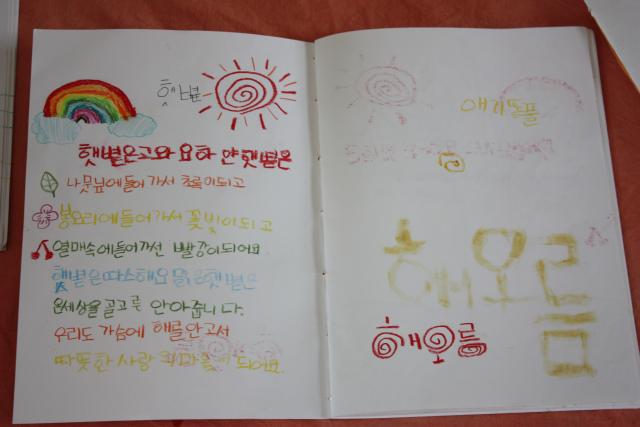 햇볕
햇볕은고와요하얀햇볕은
나뭇잎에들어가서 초록이되고
봉오리에들어가서 꽃빛이되고
열매속에들어가선 빨강이되어요
햇볕은따스해요 맑은햇볕은
온세상을골고루 안아줍니다.
우리도 가슴에 해를안고서
따뜻한사랑 의마음이되어요.
애기똥풀
해오름
해오름